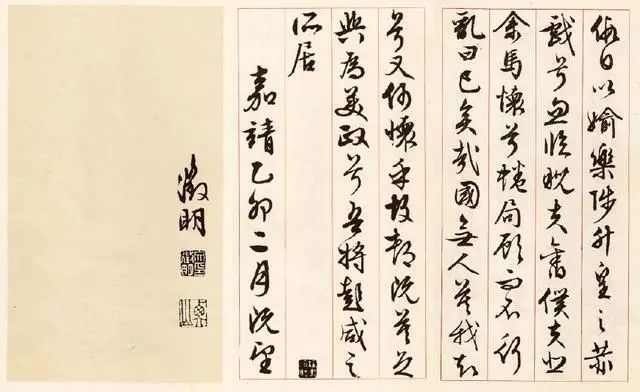 假日以婾樂陟升皇之赫
戲兮忽臨睨夫舊僕夫悲
余馬懷兮蜷局顧而不行
亂曰已矣哉國無人莫我知
兮又何懷乎故都既莫足
與為美政兮吾將彭咸之
所居
嘉靖乙卯二月既望
徵明